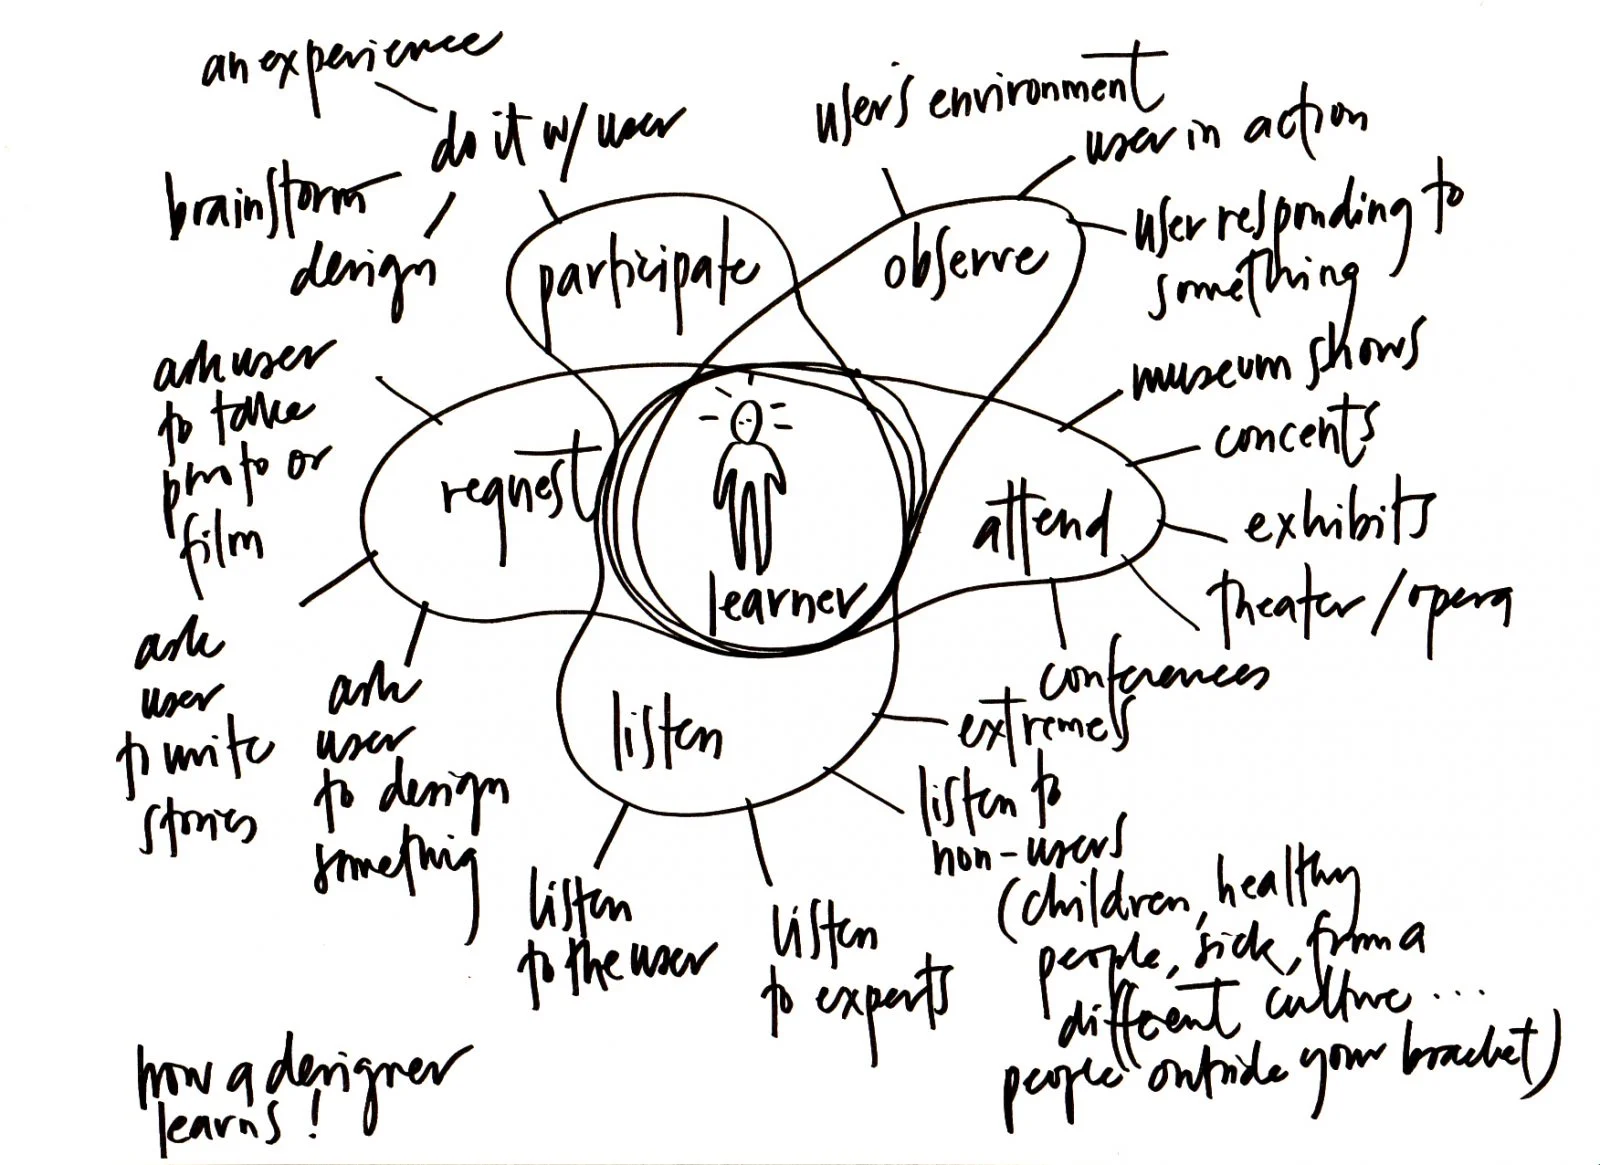 an experience
do it w/ user
brainstorm
design
participate
user's environment
user in action
observe
user responding to
something
ask user
to take
photo or
film
request
museum shows
concerts
attend
exhibits
theater / opera
conferences
learner
ask
user
to write
stories
ask
user
to design
something
listen
extremes
listen to
non-users
(children, healthy
people, sick, from a
different culture ...
people outside your bracket)
listen
to the user
listen
to experts
how a designer
learns!